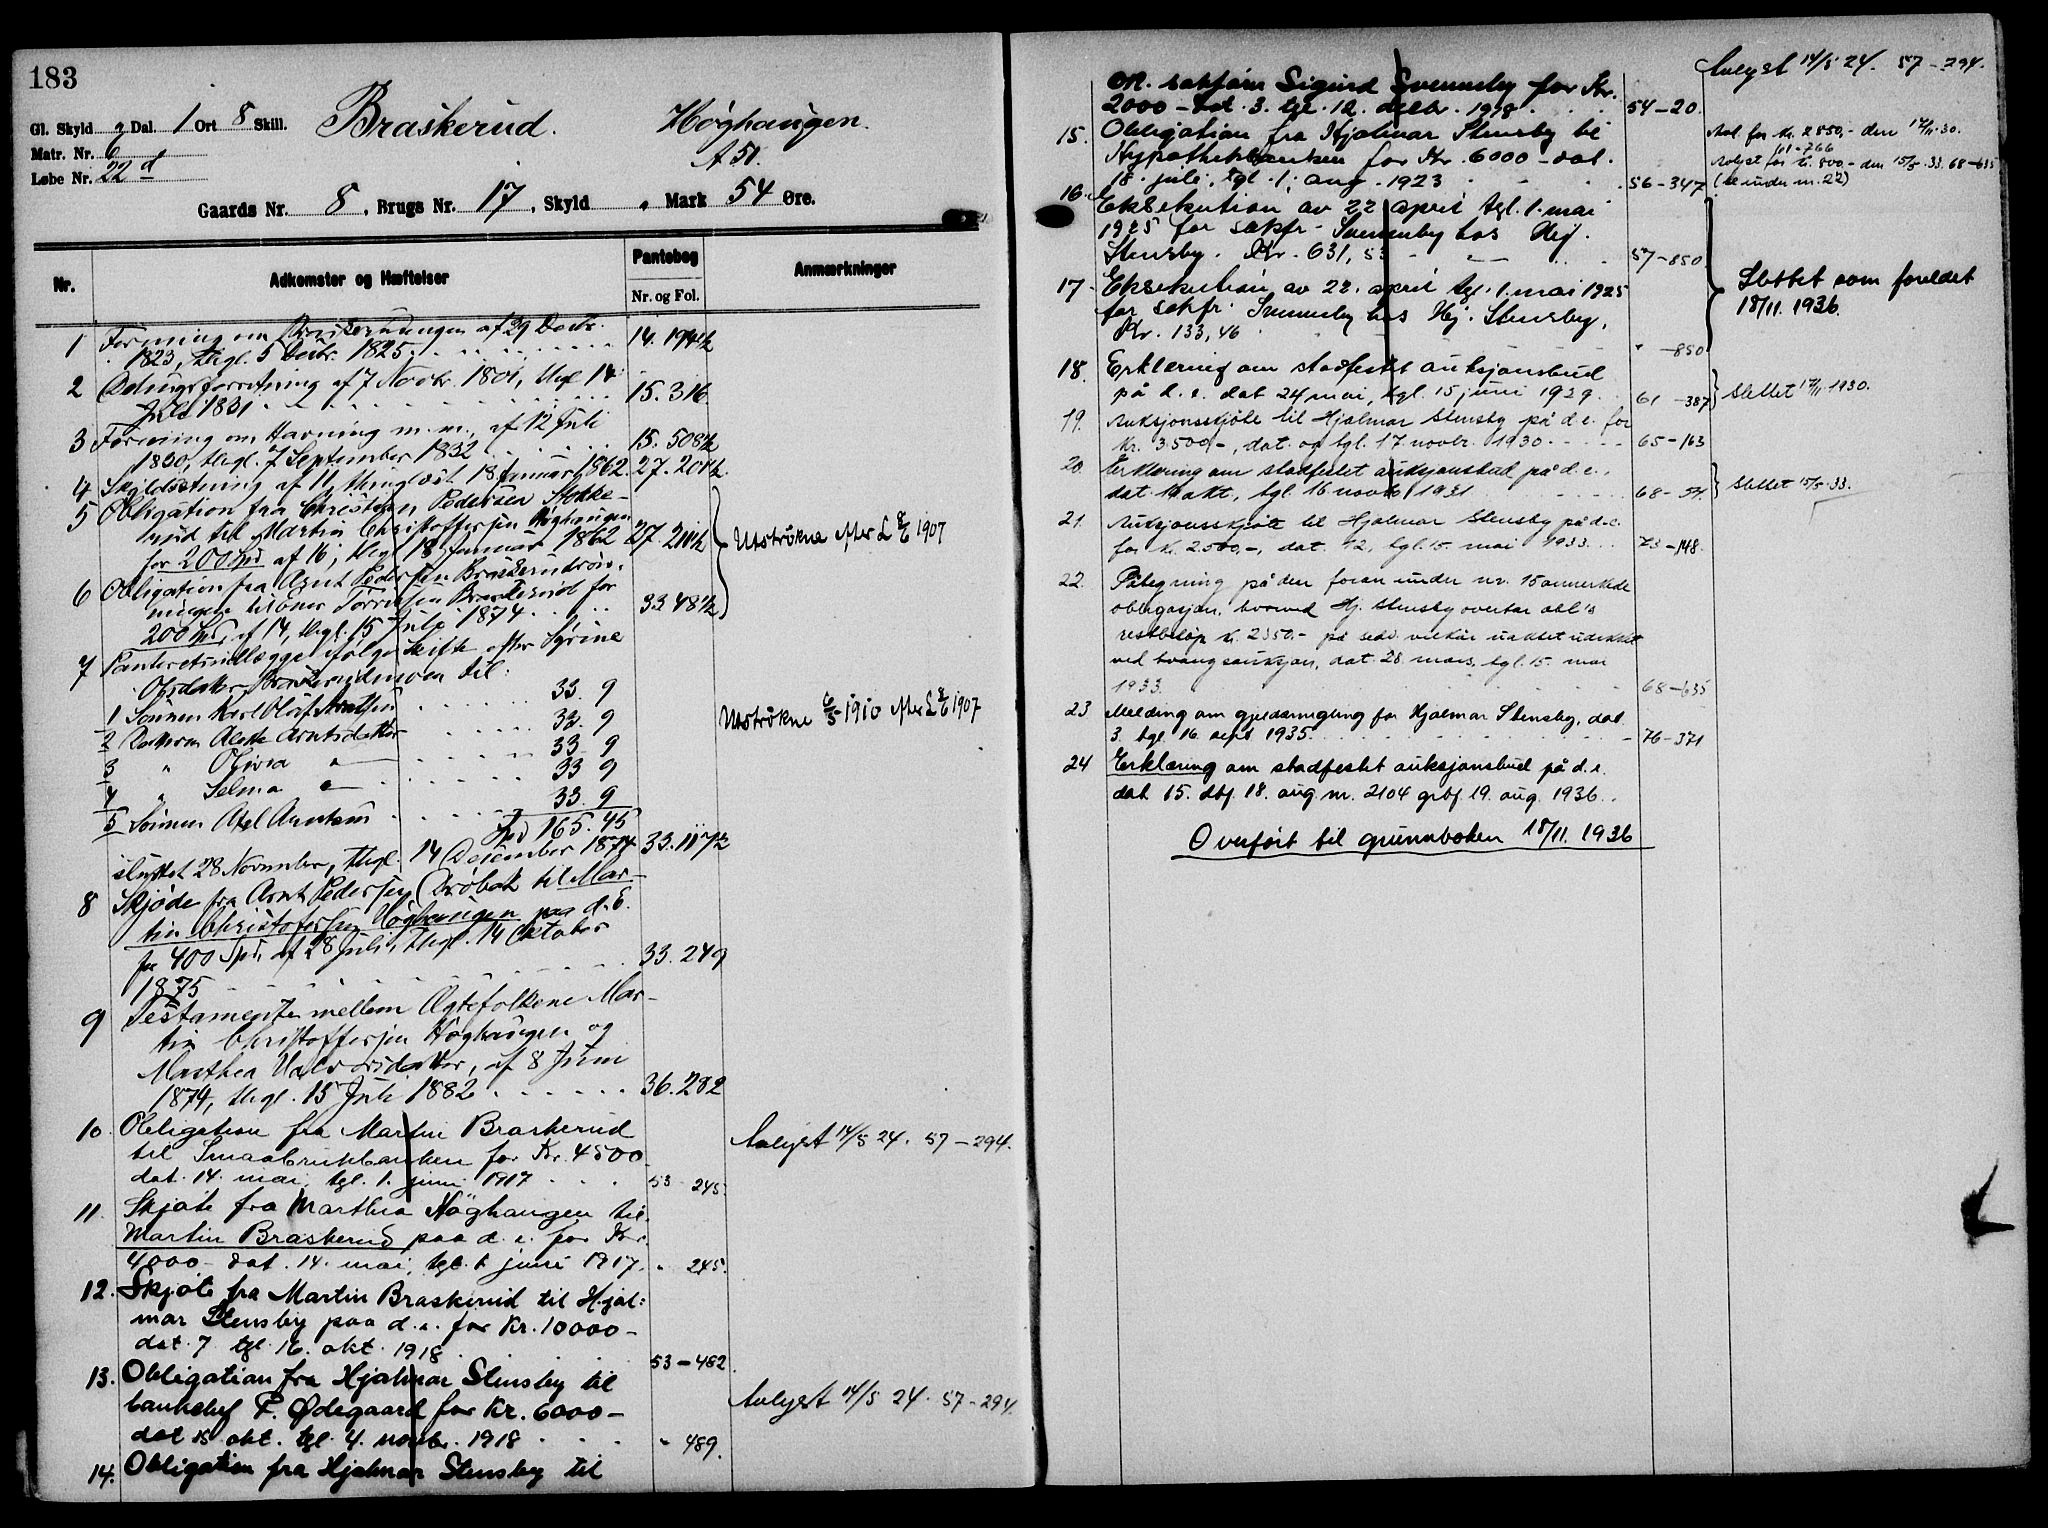 183
Gl. Skyld 2 Dal. 1 Ort 8 Skill.
Braskerud.
Høghaugen.
Matr. Nr. 6
A 51.
Løbe Nr. 22 d
Gaards Nr. 8, Brugs Nr. 17, Skyld " Mark 54 Øre.
Nr.
Adkomster og Hæftelser
Pantebog
Nr. og Fol.
Anmærkninger
1 Forening om af 29 Decbr.
1823, thgl. 5 Decbr. 1825 14. 194½
2 Delingsforretning af 7 Novbr. 1801, thgl 14
Juli 1831 15. 316.
3 Forening om Havning m. m., af 12 Juli
1830, thgl. 7 September 1832 15. 508½
4 Skyldsetning af 11, thinglæst 18 Januar 1862. 27. 201½
5 Obligation fra Christian Pedersen Stokke-
rud til Martin Christoffersen Høghaugen
for 200 Spd af 16, thgl 18 Januar 1862 27. 211½
Udstrøkne efter L 8/6 1907
6 Obligation fra Arnt Pedersen
til Torresen Braskerud for
200 Spd, af 14, thgl. 15 Juli 1874 33 48½
7 Panteretsudlægge ifølge Skifte efter Syrine
Olsdatter til:
1 Sønnen Karl Olaf Arntsen 33. 9
2 Datteren Alette Arntsdatter 33. 9
Udstrøkne 6/5 1910 efter L 8/6 1907
3 " Olivia " 33 9
4 " Selma " 33 9
5 Sønnen Axel Arntsen 33. 9
Spd 165. 45
sluttet 28 November, thgl. 14 December 1874 33. 117½
8 Skjøde fra Arnt Pedersen Drøbak til Mar-
tin Christofersen Høghaugen paa d. E.
for 400 Spd, af 28 Juli, thgl. 14 Oktober
1875 33. 249
9 Testamente mellem Ægtefolkene Mar-
tin Christoffersen Høghaugen og
Marthea Halvorsdatter, af 8 Juni
1874, thgl. 15 Juli 1882 36. 282
10. Obligation fra Martin Braskerud
til Smaabrukbanken for Kr. 4500
dat. 14. mai, tgl. 1. juni 1917 53 245.
Avlyst 14/5 24. 57-294.
11. Skjøte fra Marthea Høghaugen til
Martin Braskerud paa d. e. for Kr.
4000- dat. 14. mai, tgl. 1 juni 1917. " 245.
12. Skjøte fra Martin Braskerud til Hjal=
mar Stensby paa d. e. for Kr. 10000-
dat. 7 tgl. 16. okt. 1918 53-482.
13. Obligation fra Hjalmar Stensby til
banchef F. Ødegaard for Kr. 6000-
dat 15 okt. tgl. 4. novbr. 1918 " 489.
Avlyst 14/5 24. 57-294.
14. Obligation fra Hjalmar Stensby til
sakfører Sigurd Svenneby for Kr.
2000- dat. 3. tgl. 12. decbr. 1918 54-20.
Avlyst 14/5 24. 57-294.
15. Obligation fra Hjalmar Stensby til
Hypothekbanken for Kr. 6000- dat.
18. juli, tgl. 1. aug. 1923 56-347
Avl. for Kr. 2850,- den 14/11.30.
61-766
Avlyst for Kr. 800,- den 15/5.33. 68-635
(se under nr. 22)
16. Eksekution av 22 april tgl. 1. mai
1925 for sakfr. Svenneby hos Hj.
Stensby. Kr. 631,53 57-850.
17. Eksekution av 22. april tgl. 1. mai 1925
for sakfr. Svenneby hos Hj. Stensby.
Kr. 133,46 " -850
Slettet som foreldet
18/11. 1936.
18. Erklæring om stadfestet auksjonsbud
på d. e. dat 24 mai, tgl. 15 juni 1929. 61-387
Slettet 17/11 1930.
19. Auksjonsskjøte til Hjalmar Stensby på d. e. for
Kr. 3500,-, dat. og tgl. 17. novbr. 1930 65-163
20. Erklæring om stadfestet auksjonsbud på d. e.,
dat. okt, tgl. 16 novbr 1931 68-54.
Slettet 15/5.33.
21. Auksjonsskjøte til Hjalmar Stensby på d. e.
for Kr. 2500,-, dat. 12, tgl. 15. mai 1933. 73-148.
22. Påtegning på den foran under nr. 15 anmerkede
obligasjon, hvorved Hj. Stensby overtar obl's
restbeløp Kr. 2350,- på sedv. vilkår uaktet udekket
ved tvangsauksjon, dat. 28. mars, tgl. 15. mai
1933. 68-635
23 Melding om gjeldsmegling for Hjalmar Stensby, dat.
3. tgl. 16. sept 1935. 76-371
24 Erklæring om stadfestet auksjonsbud på d. e.
dat 15. dbf. 18. aug nr. 2104 grbf. 19. aug. 1936.
Overført til grunnboken 18/11. 1936